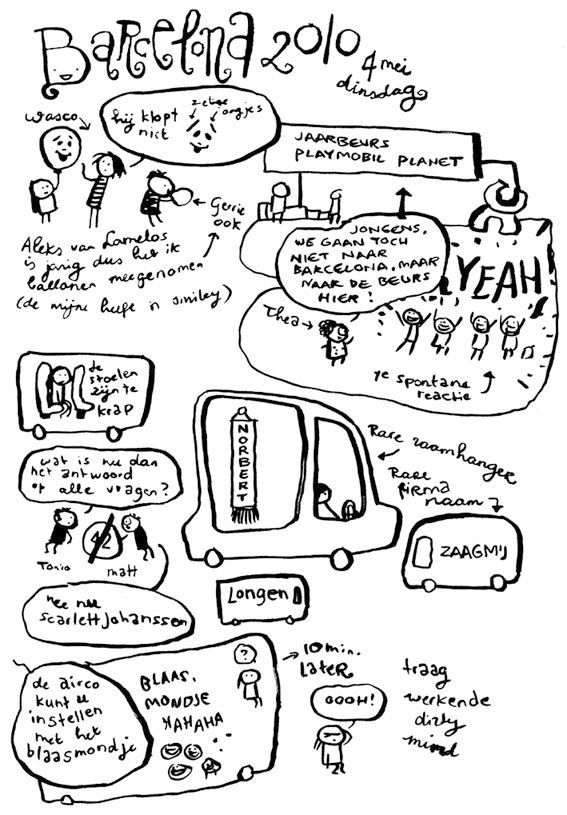 Barcelona 2010
4 mei
dinsdag
wasco
hij klopt
niet
oogjes
JAARBEURS
PLAYMOBIL PLANET
Gerrie
ook
Aleks van
is jarig dus heb ik
ballonen meegenomen
(de mijne heeft n smiley)
JONGENS,
WE GAAN TOCH
NIET NAAR
BARCELONA, MAAR
NAAR DE BEURS
HIER!
YEAH
Thea
1e spontane
reactie
de
stoelen
zijn te
krap
wat is nu dan
het antwoord
op alle vragen?
42
Tonio
matt
nee nee
scarlett johanssen
NORBERT
Rare raamhanger
Rare
firma
naam
ZAAGMIJ
Longen
de airco
kunt u
instellen
met het
blaasmondje
BLAAS,
MONDJE
HAHAHA
?
10 min.
LATER
OOOH!
traag
werkende
dirty
mind